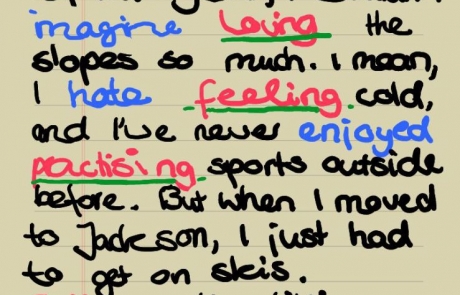 imagine loving the
slopes so much. I mean,
I hate feeling cold,
and I've never enjoyed
practising sports outside
before. But when I moved
to Jackson, I just had
to get on skis.